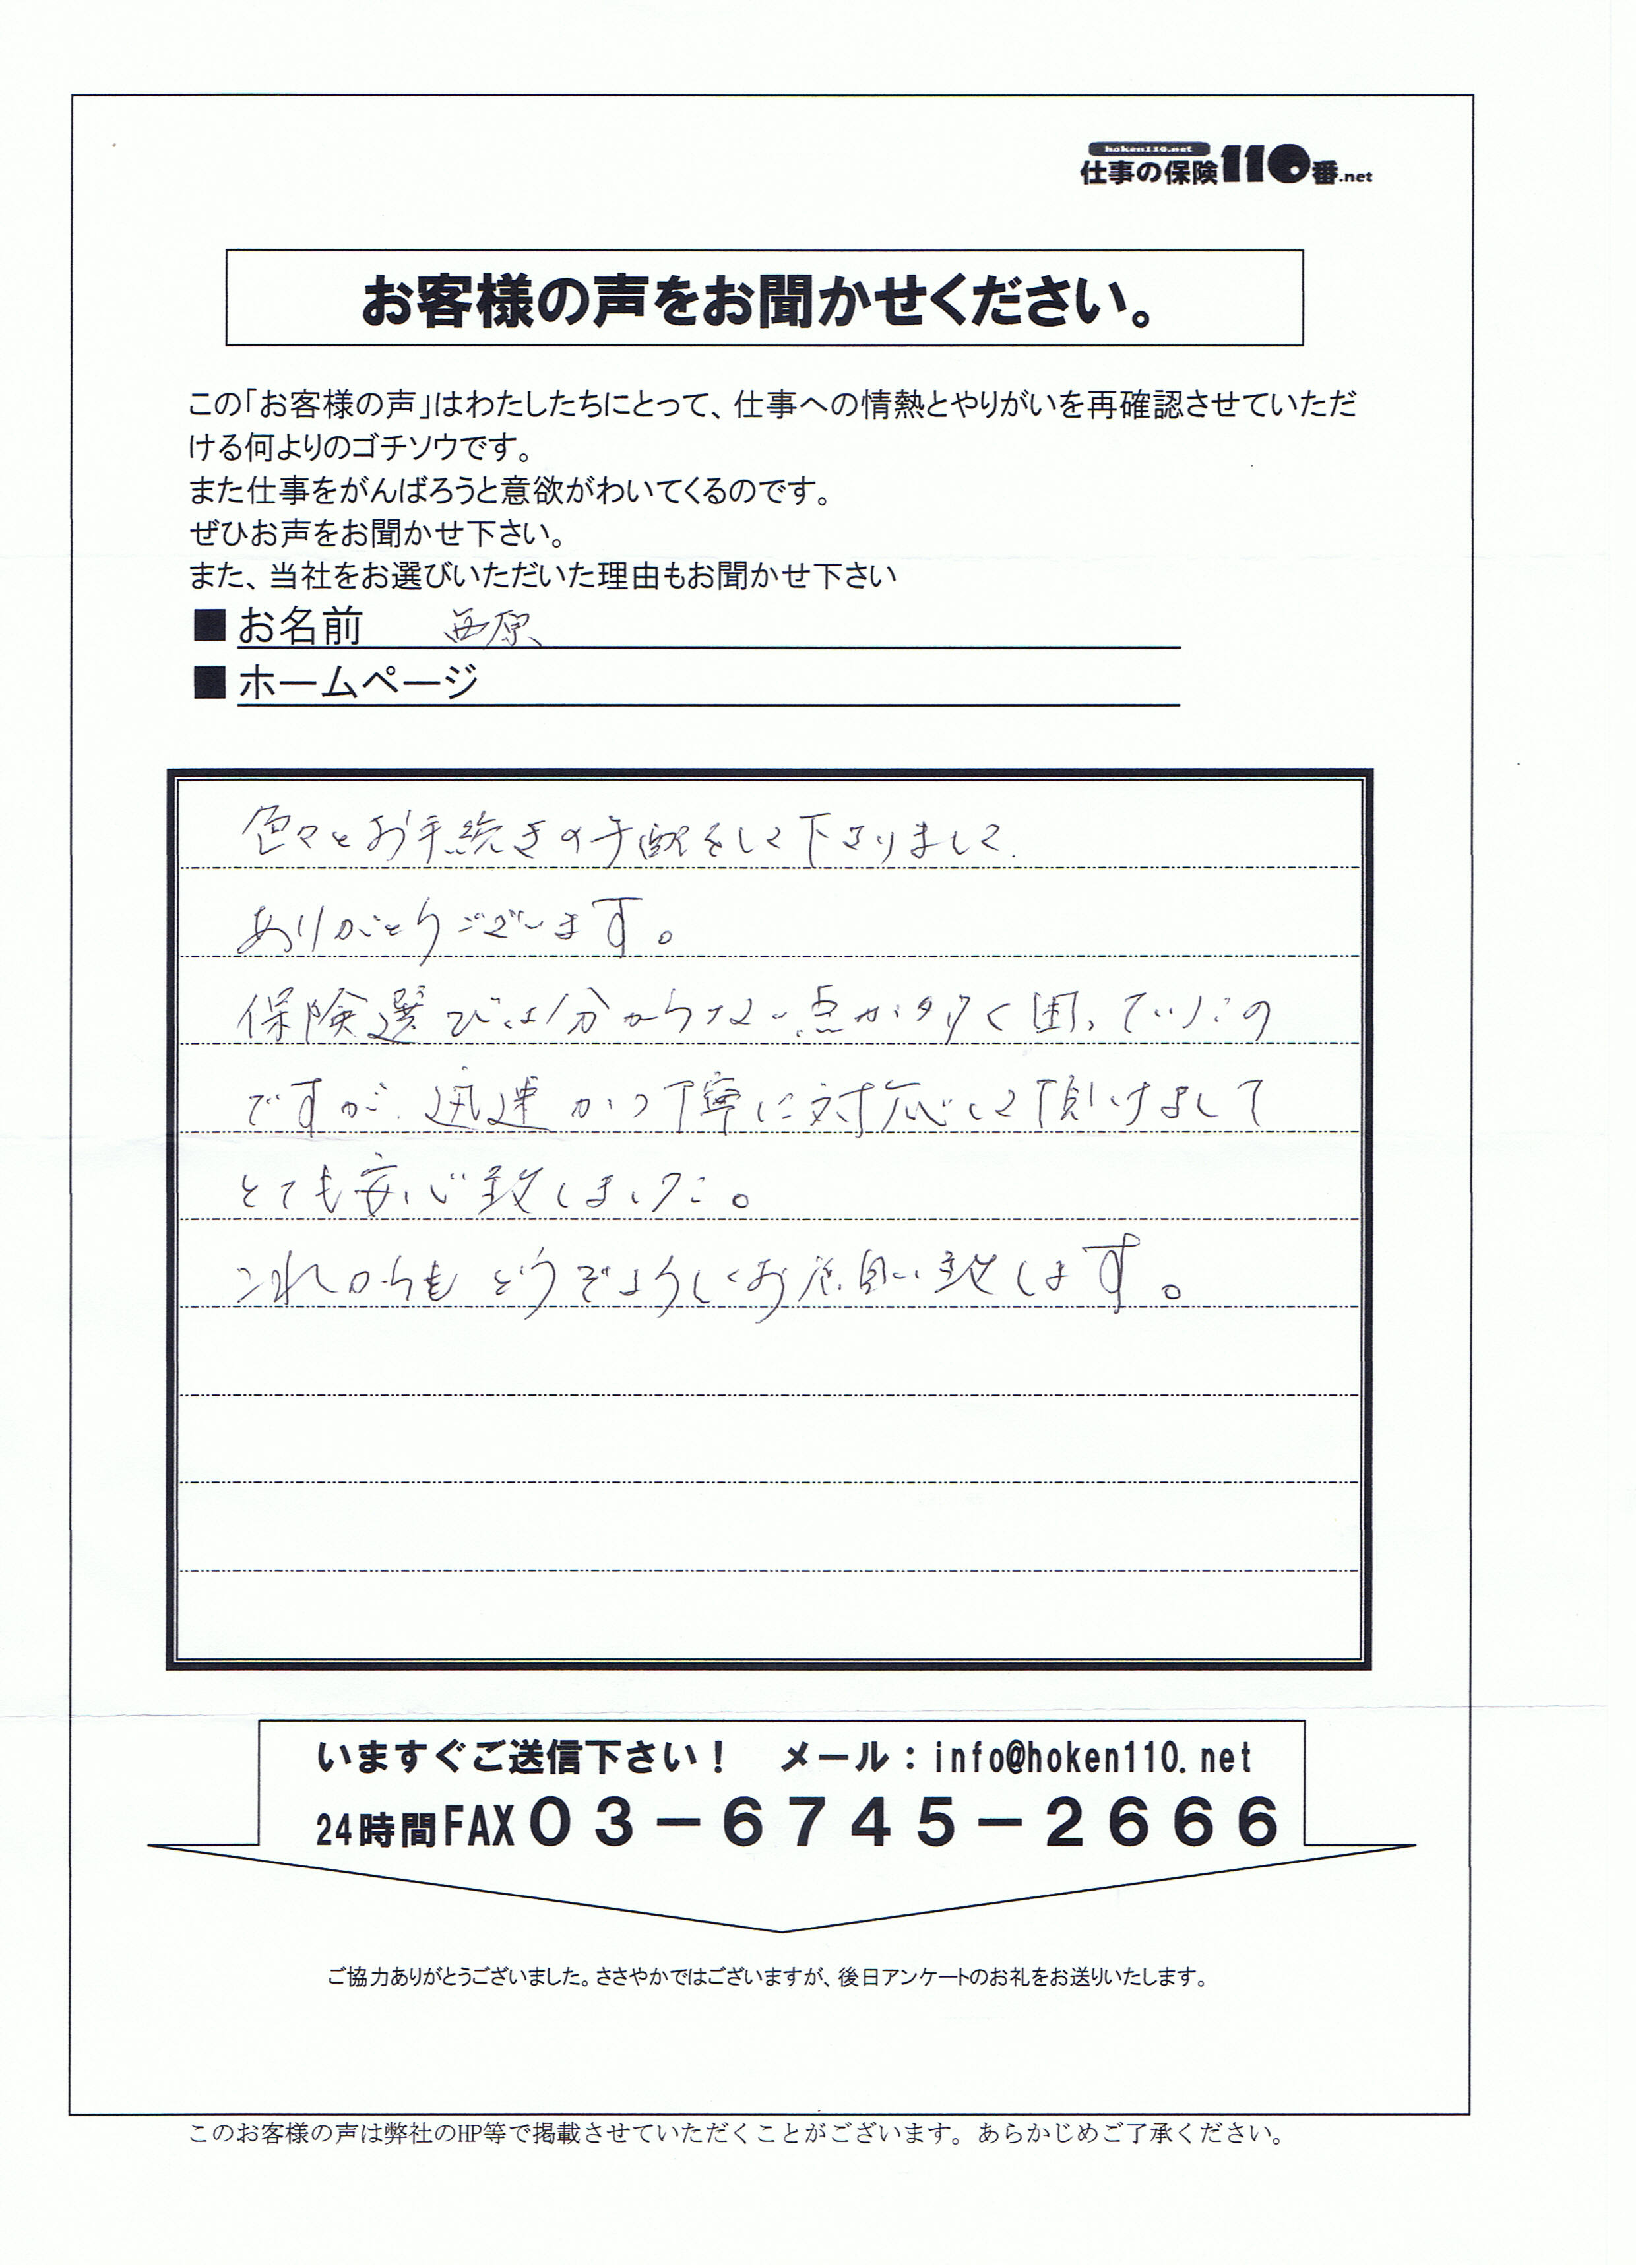 hoken110.net
仕事の保険110番.net
お客様の声をお聞かせください。
この「お客様の声」はわたしたちにとって、仕事への情熱とやりがいを再確認させていただ
ける何よりのゴチソウです。
また仕事をがんばろうと意欲がわいてくるのです。
ぜひお声をお聞かせ下さい。
また、当社をお選びいただいた理由もお聞かせ下さい
■お名前 西原
■ホームページ
色々とお手続きの手配をして下さりまして
ありがとうございます。
保険選びは分からない点が多く困っていたの
ですが、迅速かつ丁寧に対応して頂けまして
とても安心致しました。
これからもどうぞよろしくお願い致します。
いますぐご送信下さい！ メール：info@hoken110.net
24時間FAX０３－６７４５－２６６６
ご協力ありがとうございました。ささやかではございますが、後日アンケートのお礼をお送りいたします。
このお客様の声は弊社のHP等で掲載させていただくことがございます。あらかじめご了承ください。